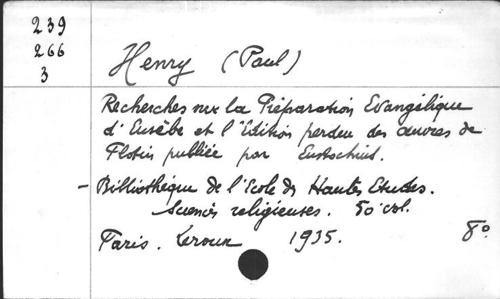 239
266
3
Henry (Paul)
Recherches sur la Préparation Evangélique
d'Eusèbe et l'Edition perdue des œuvres de
Plotin publiée par Eustochius.
- Bibliothèque de l'Ecole des Hautes Etudes.
Sciences religieuses. 50 vol.
Paris. Leroux 1935. 8°